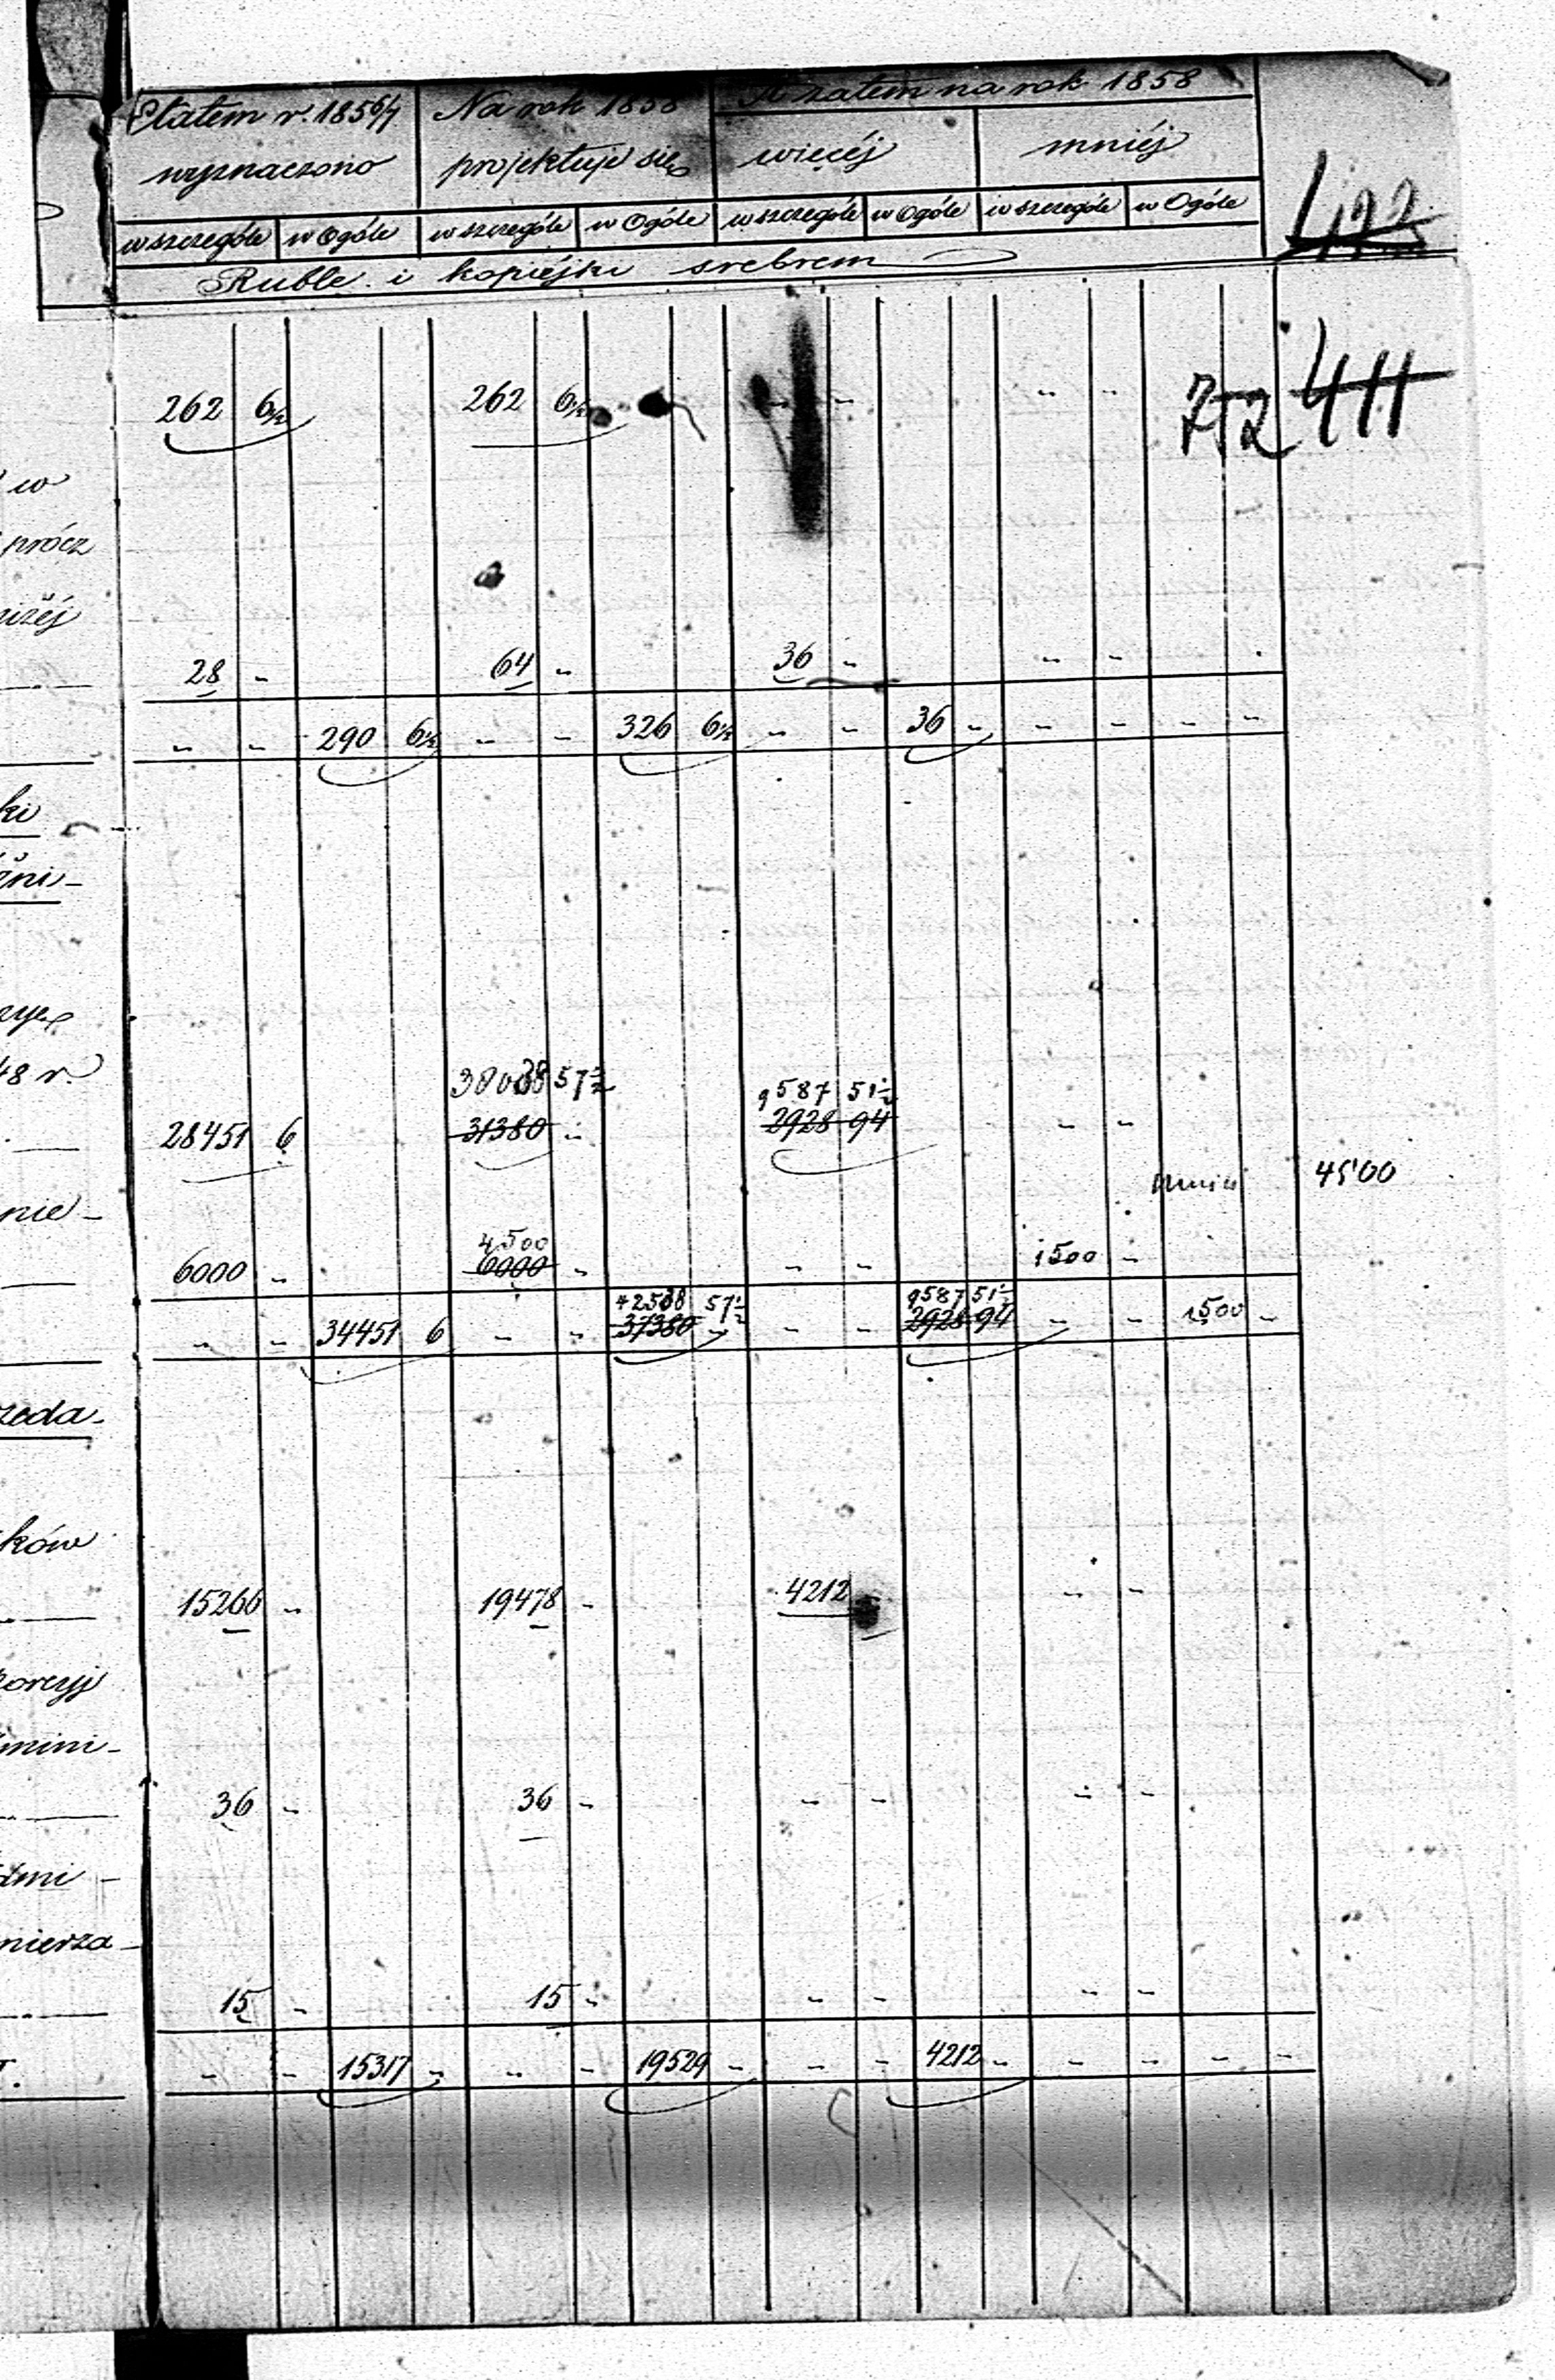 Etatem r. 1856/7 Na rok 1858 A zatem na rok 1858
wyznaczono projektuje się więcéj mniéj
w szczególe w Ogóle w szczególe w Ogóle w szczególe w Ogóle w szczególe w Ogóle
422
Ruble i kopiéjki srebrem
411
752
262 6½ 262 6½ - -
w
prócz
niżéj
28 - 64 - 36 - - -
- - 290 6½ - - 326 6½ - - 36 - - - - -
ki
żni-
48 r.
38038 57½ 9587 51½
28451 6 31380 - 2928 94 - -
mniej 4500
nie-
4500
6000 - 6000 - - - 1500 -
42538 57½ 9587 51½
- - 34451 6 - - 37380 - - - 2928 94 - - 1500 -
zeda-
ków
15266 - 19478 - 4212 - -
porcyj
mini-
36 - 36 - - - - -
dmi-
mierza-
15 - 15 - - - - -
- - 15317 - - - 19529 - - - 4212 - - - - -